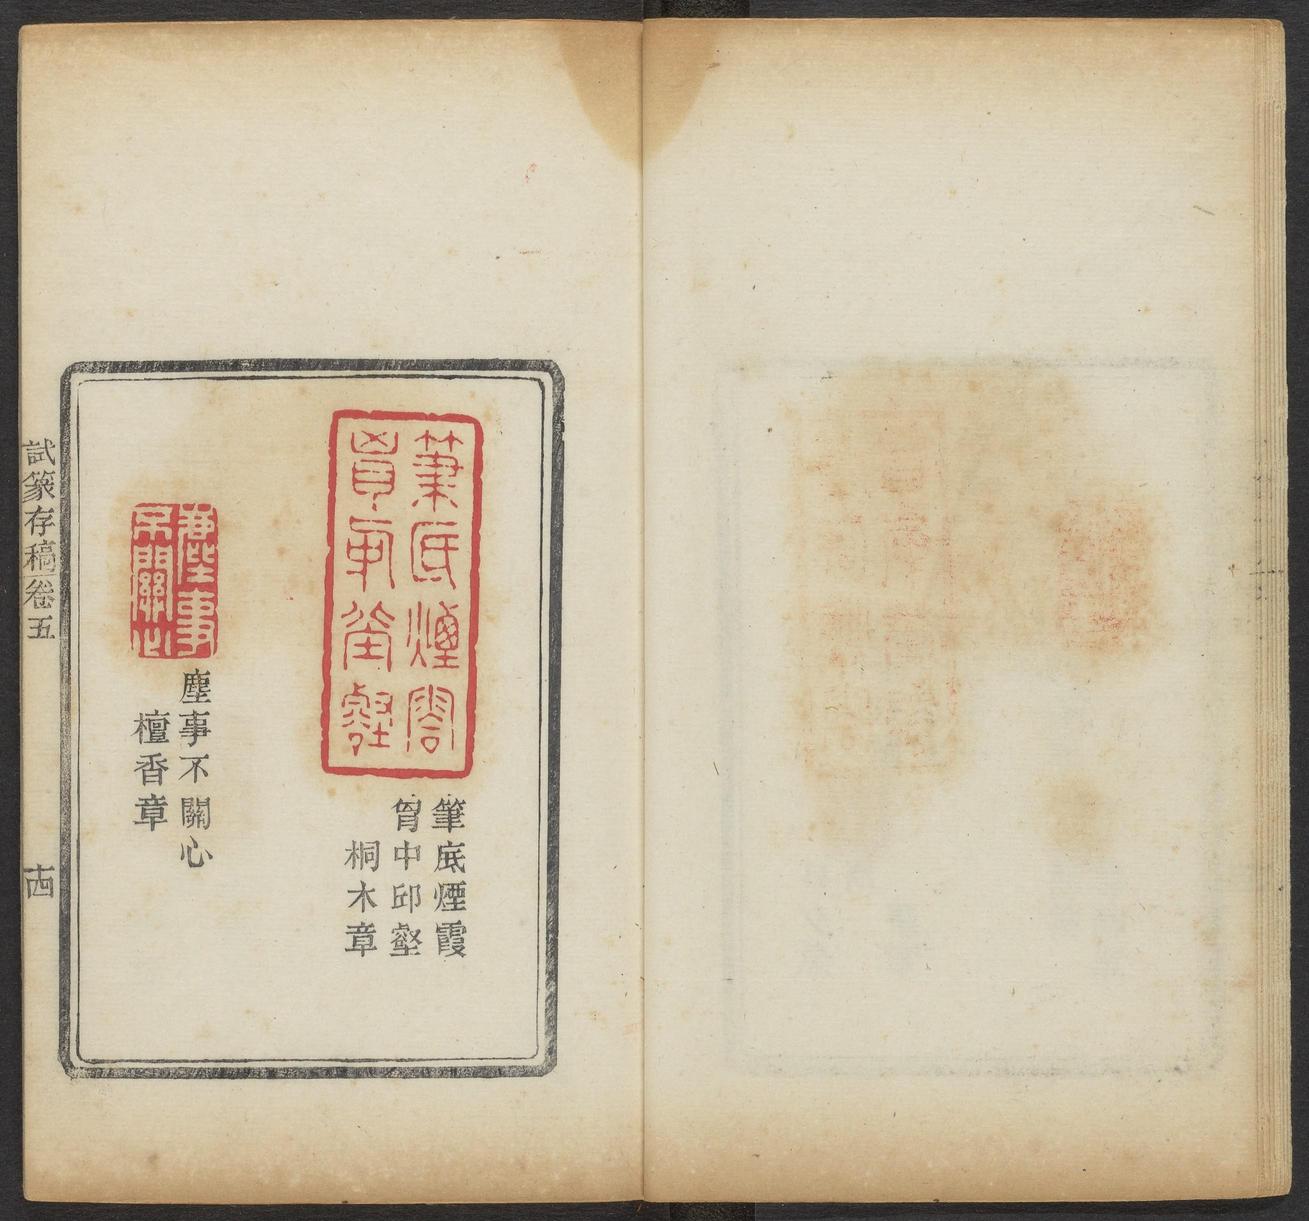 筆底煙霞
胷中邱壑
筆底煙霞
胷中邱壑
桐木章
塵事
不關心
塵事不關心
檀香章
試篆存稿 卷五
十四